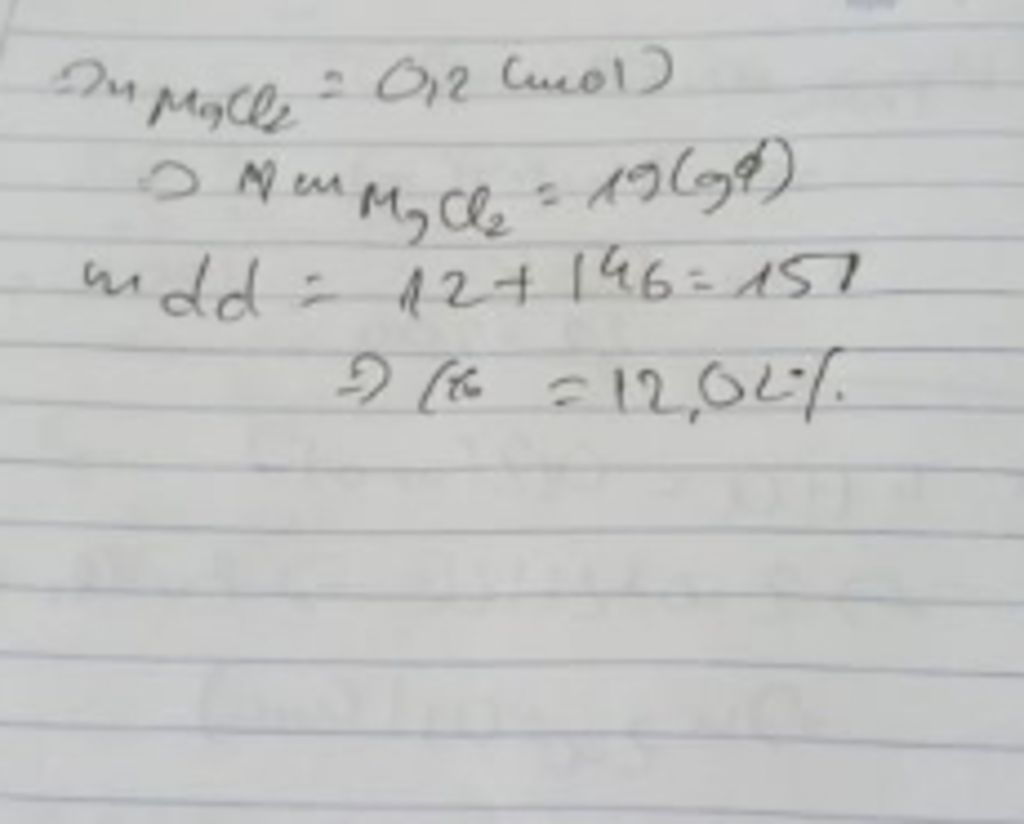 => n MgCl2 = 0,2 (mol)
=> m MgCl2 = 19 (g)
m dd = 12 + 146 = 157
=> C% = 12,02%